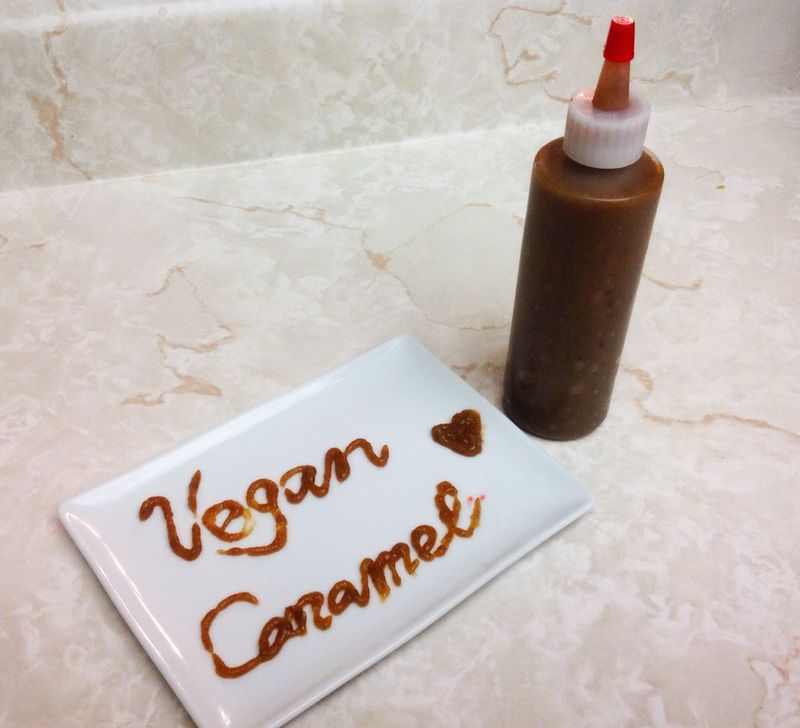 Vegan
Caramel